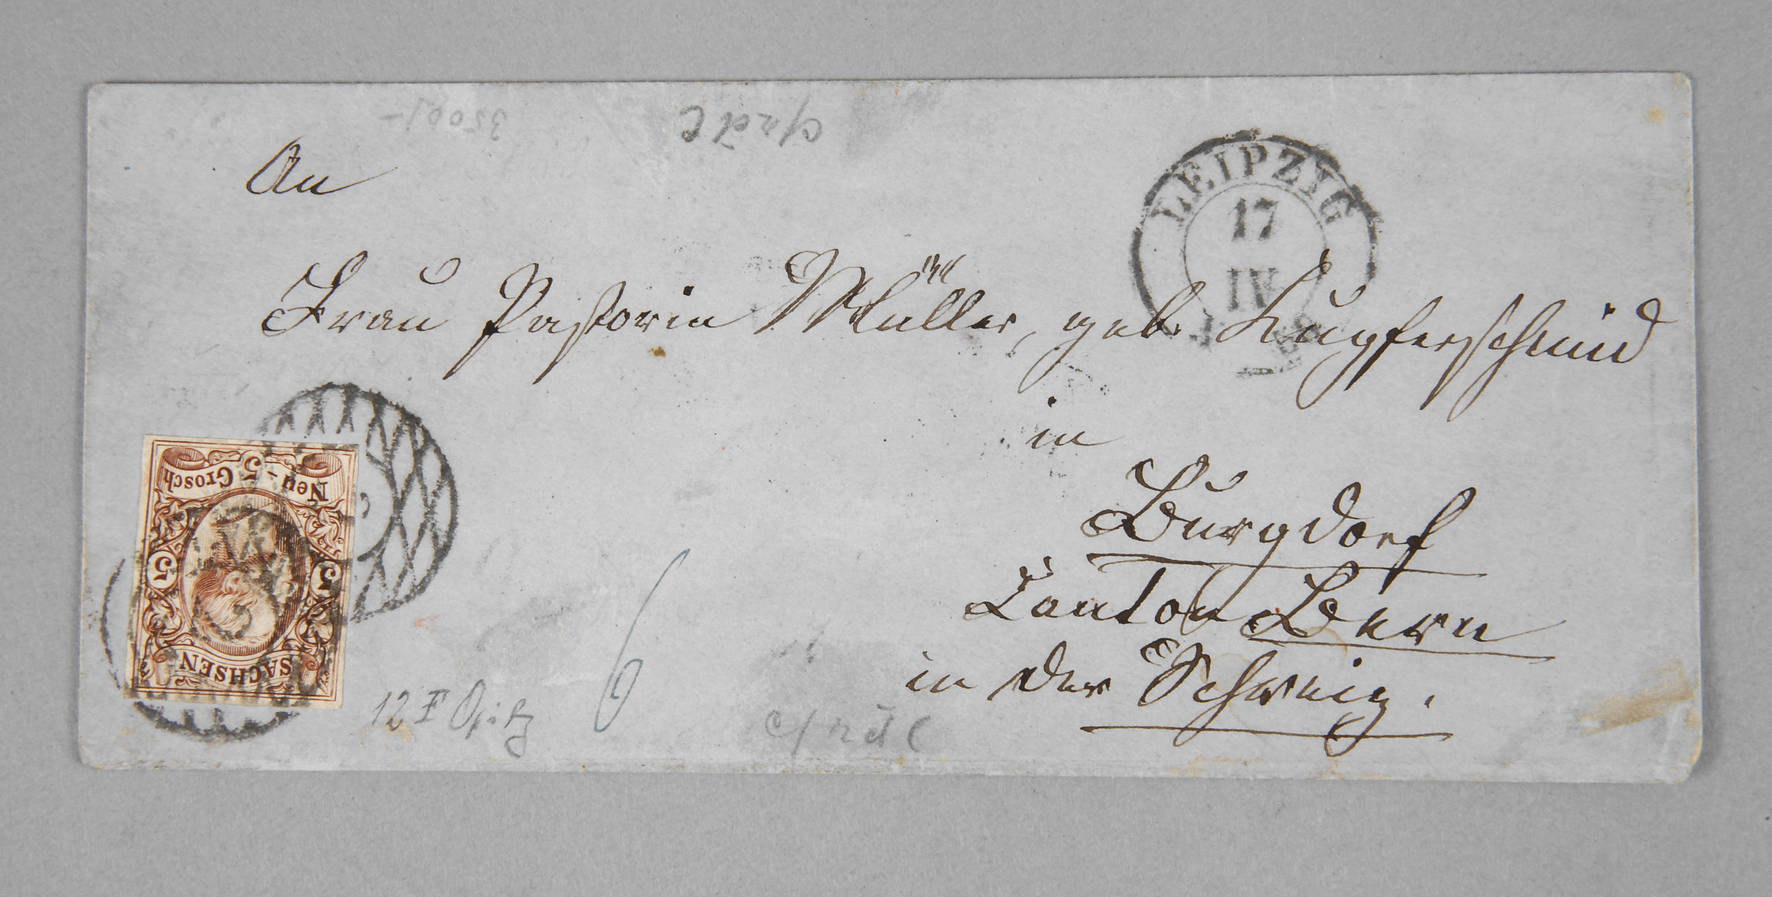 3500/-
LEIPZIG
17
IV
An
Frau Pastorin Müller, geb. Kupferschmid
in
Burgdorf
Canton Bern
in der Schweiz.
Neu-5 Grosch
5 5
SACHSEN
12 F Opitz
6